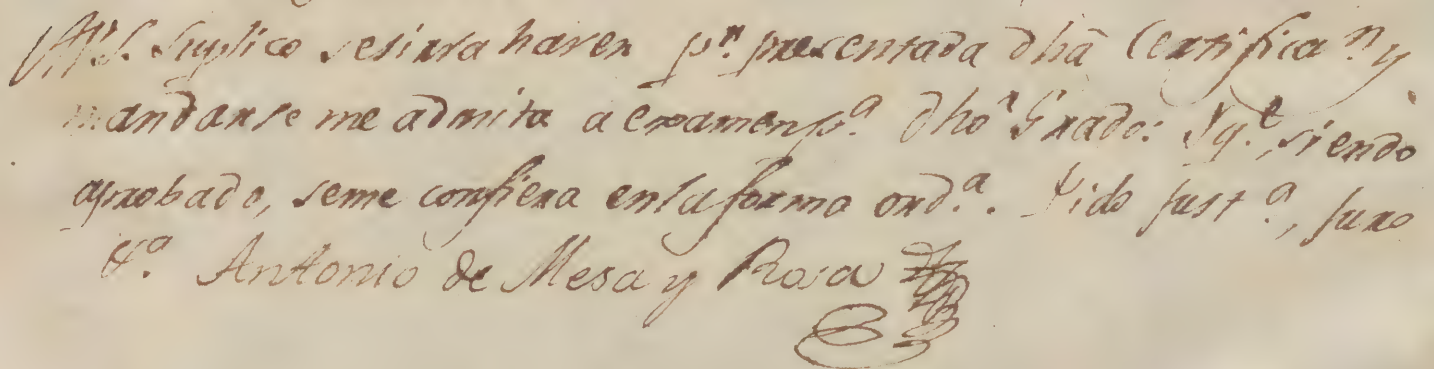 A V. S. Suplico se sirva haver pr. presentada dha Certifican. y
mandar se me admita a examen pa. dho Grado: Y qe. siendo
aprobado, se me confiera en la forma orda. Pido justa., juro
&a. Antonio de Mesa y Rosa